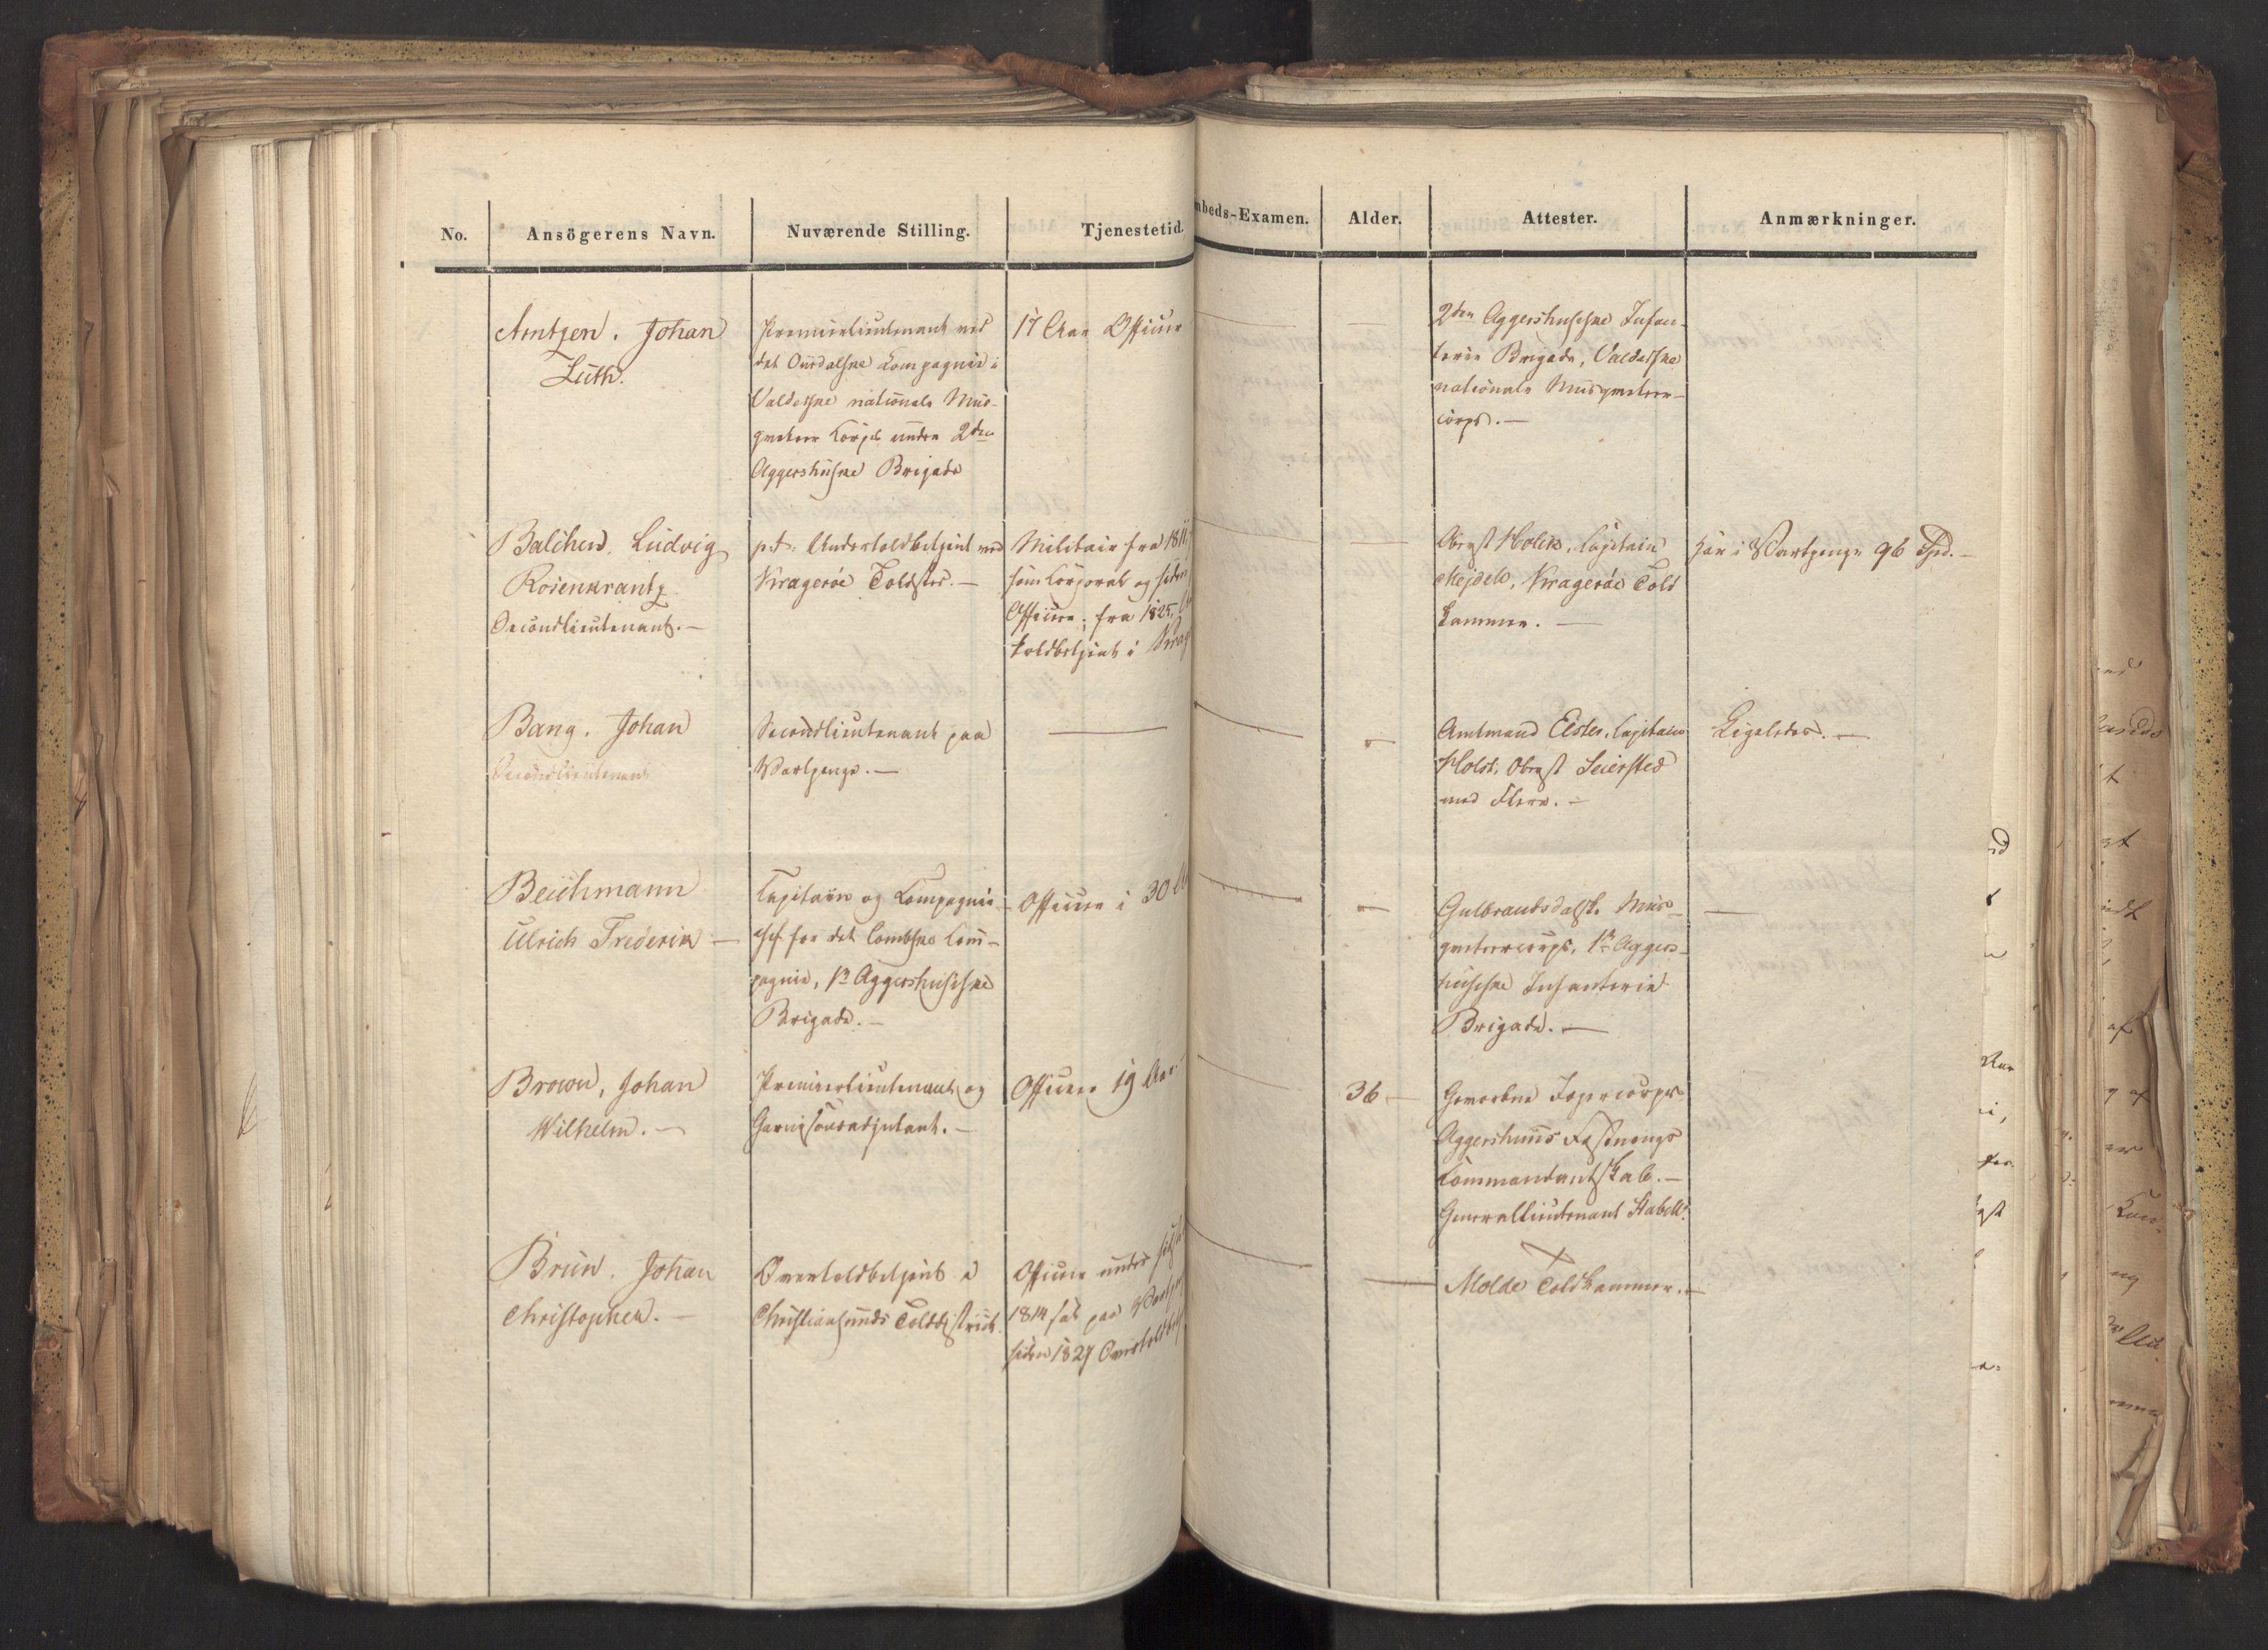 No.
Ansögerens Navn.
Nuværende Stilling.
Tjenestetid.
mbeds-Examen.
Alder.
Attester.
Anmærkninger.
Arntzen, Johan
Lüth.
Premierlieutenant ved
det Ourdalske Kompagnie i
Valderske nationale Mus-
queteer Corps under 2den
Aggershuske Brigade
17 Aar Officier
2den Aggershusiske Infan-
terie Brigade, Valderske
nationale Musqueteer-
corps. —
Balchen, Ludvig
Rosenkrantz
Secondlieutenant. —
p.t. Undertoldbetjent ved
Kragerøe Toldsted. —
Militair fra 1811
som Corporal og siden
Officier; fra 1825
toldbetjent i Krag
Obrest Holck, Capitain
Mejdel, Kragerøe Told
kammer. —
har i Vartpenge 96 Spd. —
Bang, Johan
Secondlieutenant
Secondlieutenant paa
Vartpenge. —
Amtmand Elster, Capitain
Holst, Obrest Seiersted
med Flere. —
Ligeledes. —
Beichmann
Ulrich Frederik —
Capitain og Compagnie-
chef for det Lomske Com-
pagnie, 1ste Aggershusiske
Brigade. —
Officier i 30
Gulbrandsdalske Mus-
queteercorps, 1ste Aggers-
husiske Infanterie
Brigade. —
Brown, Johan
Wilhelm. —
Premierlieutenant og
Garnisonsadjutant. —
Officier 19 Aar
36 —
Gevorbne Jægercorps
Aggershuus Fæstnings
Commandantskab. —
Generallieutenant Stabell.
Brun, Johan
Christopher. —
Overtoldbetjent i
Christiansunds Tolddistrict.
Officier under
1814 sat paa
siden 1827
Molde Toldkammer. —